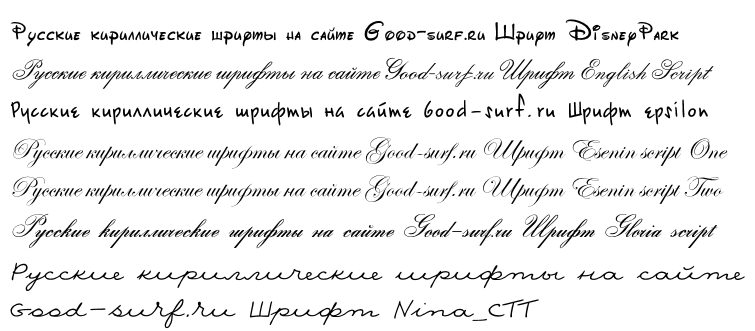 Русские кириллические шрифты на сайте Good-surf.ru Шрифт DisneyPark
Русские кириллические шрифты на сайте Good-surf.ru Шрифт English Script
Русские кириллические шрифты на сайте Good-surf.ru Шрифт epsilon
Русские кириллические шрифты на сайте Good-surf.ru Шрифт Esenin script One
Русские кириллические шрифты на сайте Good-surf.ru Шрифт Esenin script Two
Русские кириллические шрифты на сайте Good-surf.ru Шрифт Gloria script
Русские кириллические шрифты на сайте
Good-surf.ru Шрифт Nina_CTT